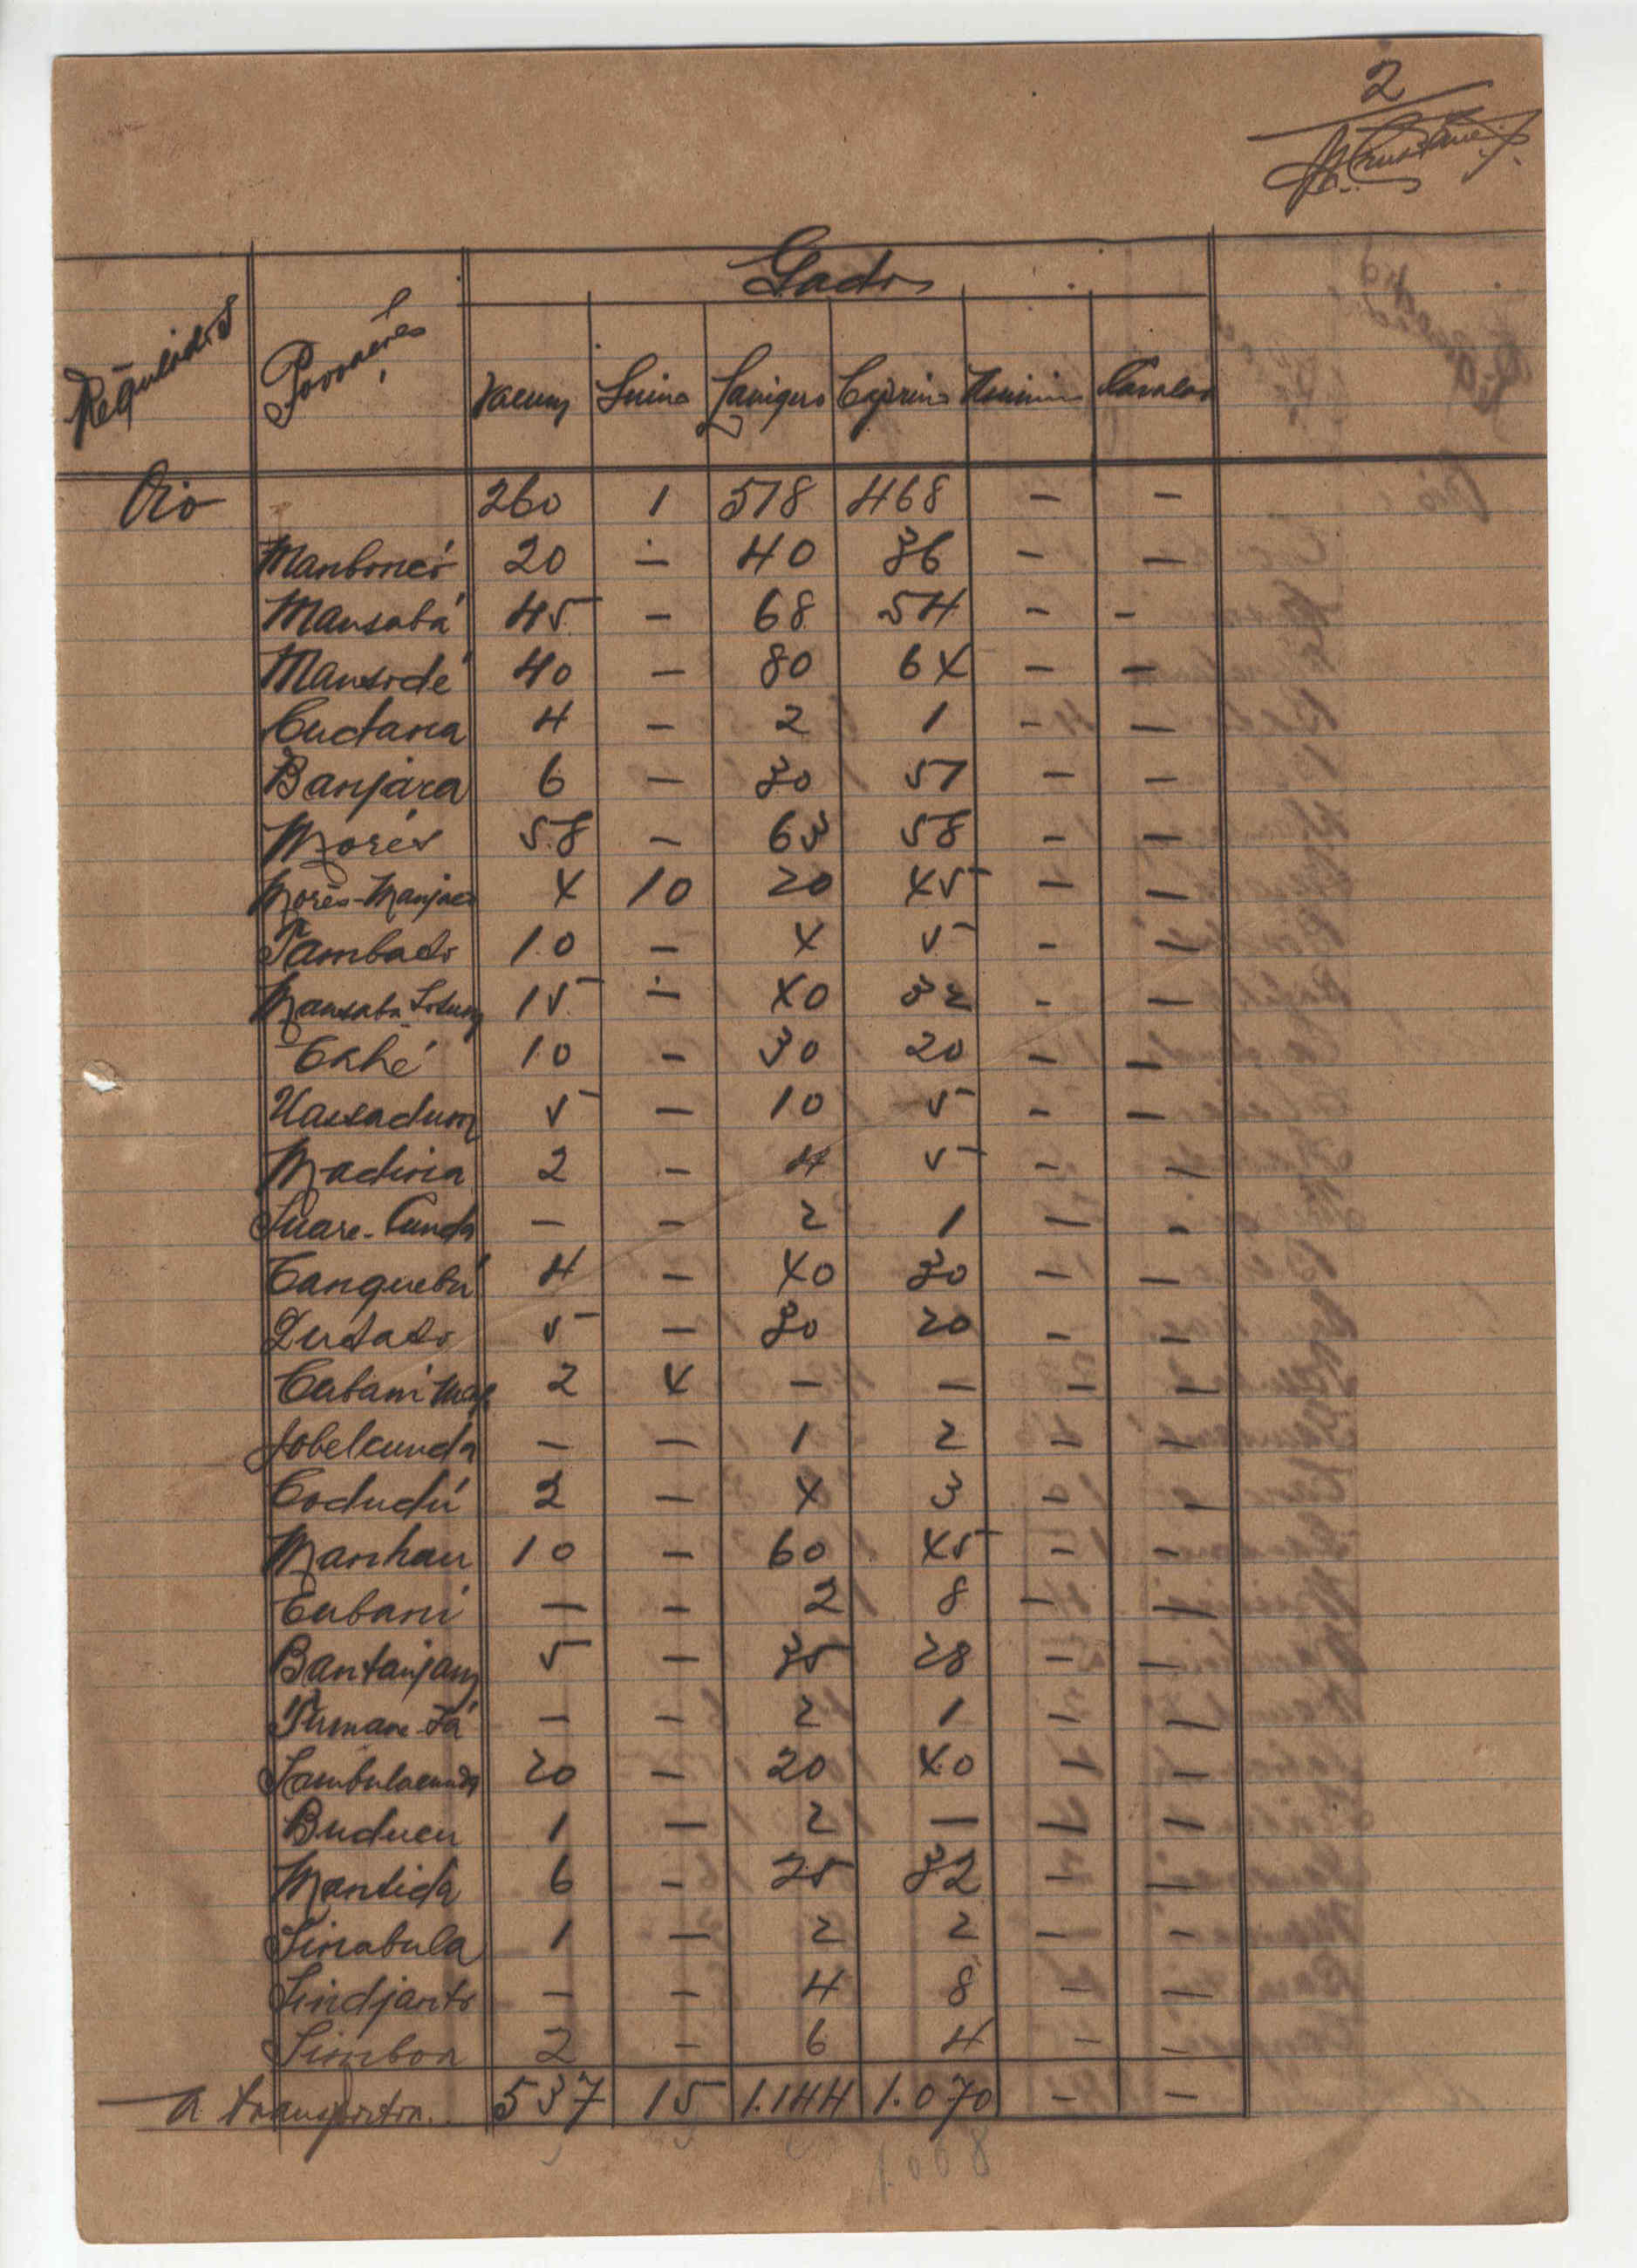 2
Gados
Regulados Povoações Vacum Suino Lanigero Caprino Asinino Cavalar
Oio 260 1 518 468 — —
Manboncó 20 — 40 36 — —
Mansabá 45 — 68 54 — —
Mansodé 40 — 80 64 — —
Cudana 4 — 2 1 — —
Banjara 6 — 30 51 — —
Morés 58 — 63 58 — —
Morés-Manjaco 4 10 20 45 — —
Tambato 10 — 4 5 — —
Mansaba Sotum 15 — 40 32 — —
Cahé 10 — 30 20 — —
Uassadum 5 — 10 5 — —
Madina 2 — 4 5 — —
Suare-Cunda — — 2 1 — —
Canquebú 4 — 40 30 — —
Dutato 5 — 30 20 — —
Cubani Manj. 2 4 — — — —
Jobelcunda — — 1 2 — —
Codudú 2 — 4 3 — —
Manhau 10 — 60 45 — —
Cubani — — 2 8 — —
Bantanjam 5 — 35 28 — —
Tumane-Fá — — 2 1 — —
Sambulacunda 20 — 20 40 — —
Buducu 1 — 2 — — —
Mantida 6 — 25 32 — —
Sinabula 1 — 2 2 — —
Sindjanto — — 4 8 — —
Simbon 2 — 6 4 — —
A transportar.. 537 15 1.144 1.070 — —
1.068